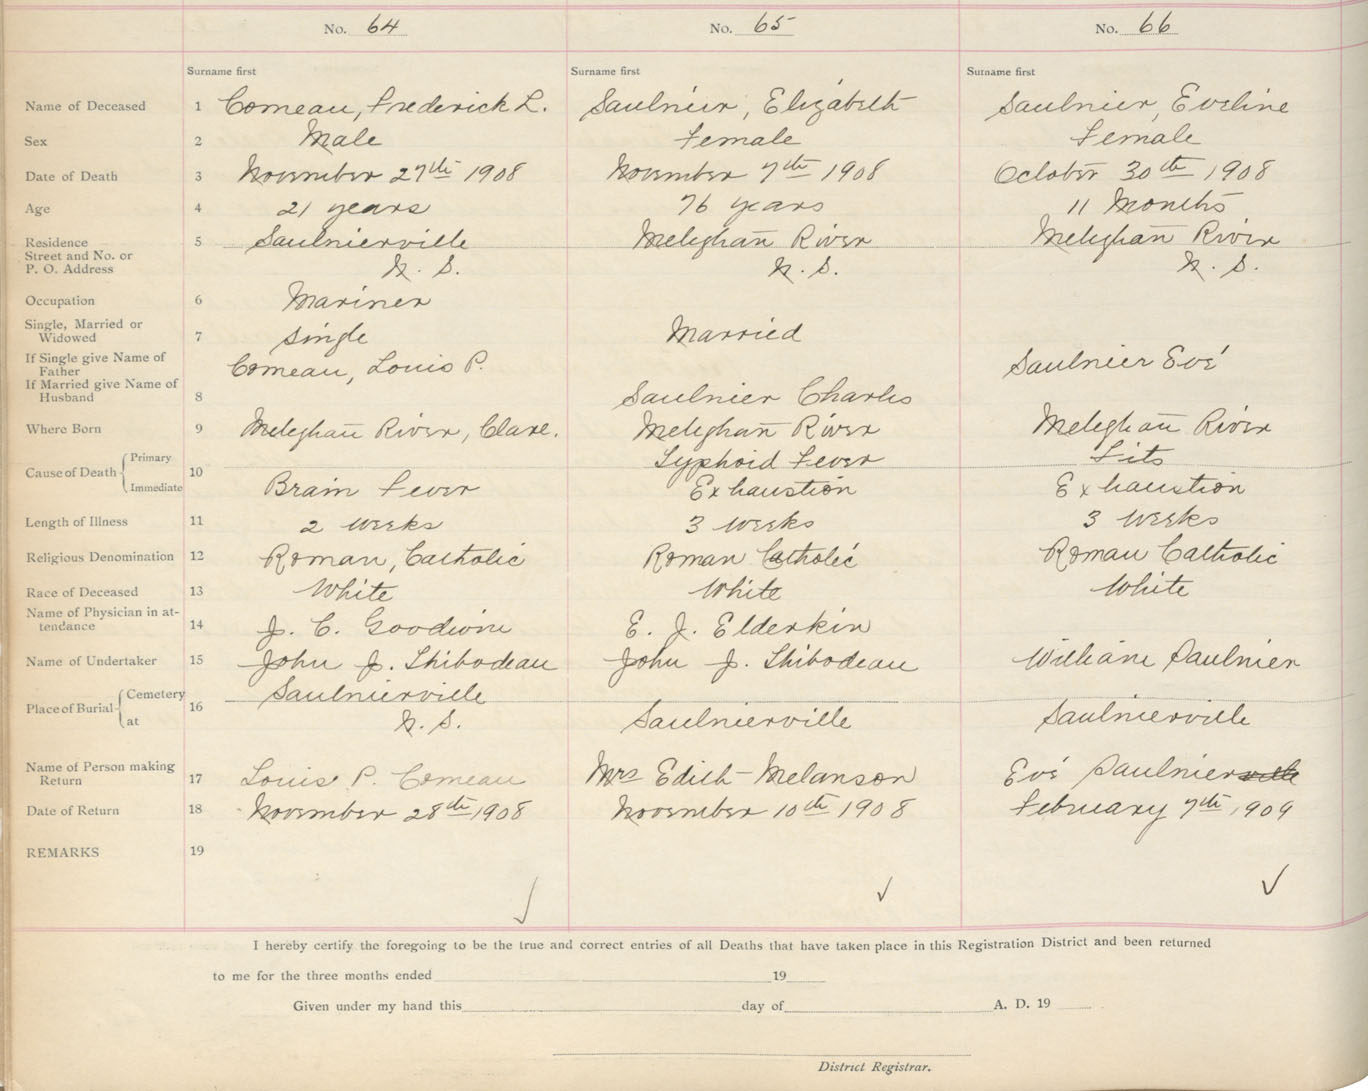 No. 64 No. 65 No. 66
Surname first Surname first Surname first
Name of Deceased 1 Comeau, Frederick L. Saulnier, Elizabeth Saulnier, Eveline
Sex 2 Male Female Female
Date of Death 3 November 27th 1908 November 7th 1908 October 30th 1908
Age 4 21 years 76 years 11 Months
Residence 5 Saulnierville Meteghan River Meteghan River
Street and No. or
P. O. Address N. S. N. S. N. S.
Occupation 6 Mariner
Single, Married or
Widowed 7 Single Married
If Single give Name of
Father Comeau, Louis P. Saulnier Evé
If Married give Name of
Husband 8 Saulnier Charles
Where Born 9 Meteghan River, Clare. Meteghan River Meteghan River
Cause of Death Primary 10 Typhoid Fever Fits
Immediate Brain Fever Exhaustion Exhaustion
Length of Illness 11 2 weeks 3 weeks 3 weeks
Religious Denomination 12 Roman, Catholic Roman Catholic Roman Catholic
Race of Deceased 13 White White White
Name of Physician in at-
tendance 14 J. C. Goodwin E. J. Elderkin
Name of Undertaker 15 John J. Thibodeau John J. Thibodeau William Saulnier
Place of Burial Cemetery 16 Saulnierville
at N. S. Saulnierville Saulnierville
Name of Person making
Return 17 Louis P. Comeau Mrs Edith Melanson Evé Saulnierville
Date of Return 18 November 28th 1908 November 10th 1908 February 7th 1909
REMARKS 19
I hereby certify the foregoing to be the true and correct entries of all Deaths that have taken place in this Registration District and been returned
to me for the three months ended 19
Given under my hand this day of A. D. 19
District Registrar.